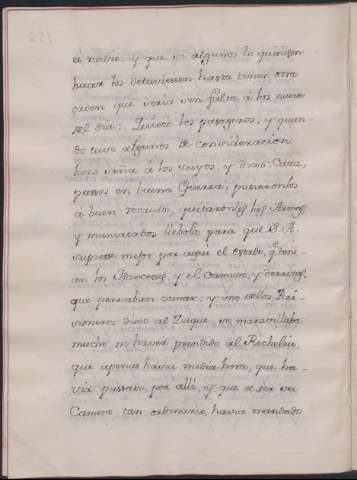 á nadie, y que si algunos lo quisiesen
hacer los detuviessen hasta tener otra
orden que seria sin falta á las nueve
del dia: Dejóso los pasageros, y quan-
do tuvo algunos de consideracion
hizo seña á los suyos, y dixo: Cata,
presos en buena Guerra, pusieronlos
á buen recaudo, quitaronles las Armas,
y maniatados llebolos para que S. A.
supiesse mejor por aqui el estado, q.e tení-
an los Franceses, y el Camino, y derrotas,
que pensaban tomar, y uno de los Pri-
sioneros dixo al Duque, se maravillaba
mucho no haver prendido al Richelieu,
que apenas havia media hora, que ha-
via passado por alli, y que de ser un
Camino tan ordinario, havia mandado